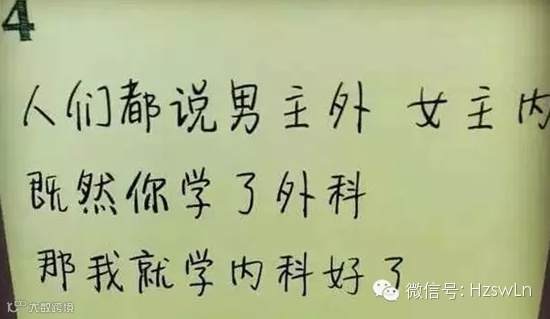 4
人们都说男主外 女主内
既然你学了外科
那我就学内科好了
微信号: HzswLn
大数跨境